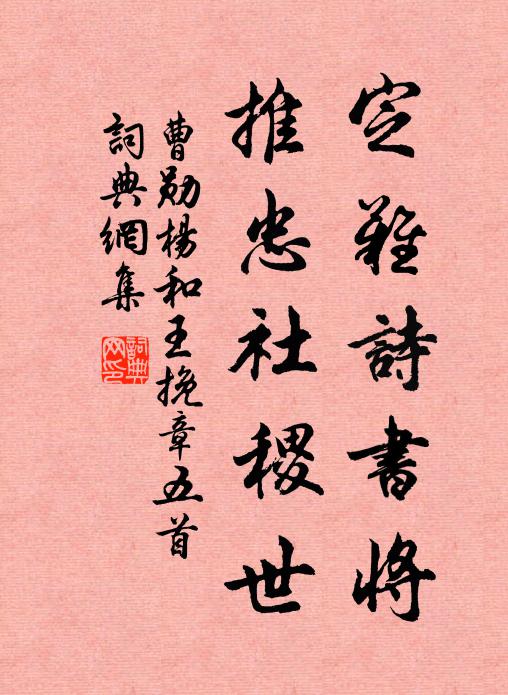 定難詩書將
推忠社稷世
曹勛楊和王挽章五首
詞典網集
詞典網印